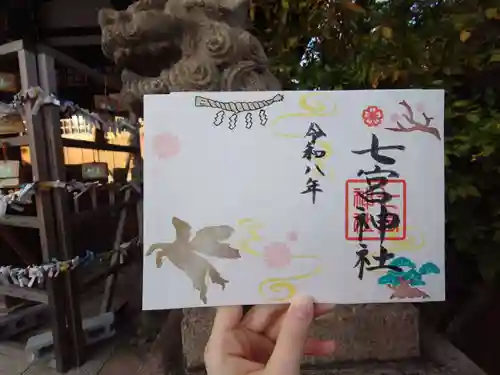 七宮神社
令和八年